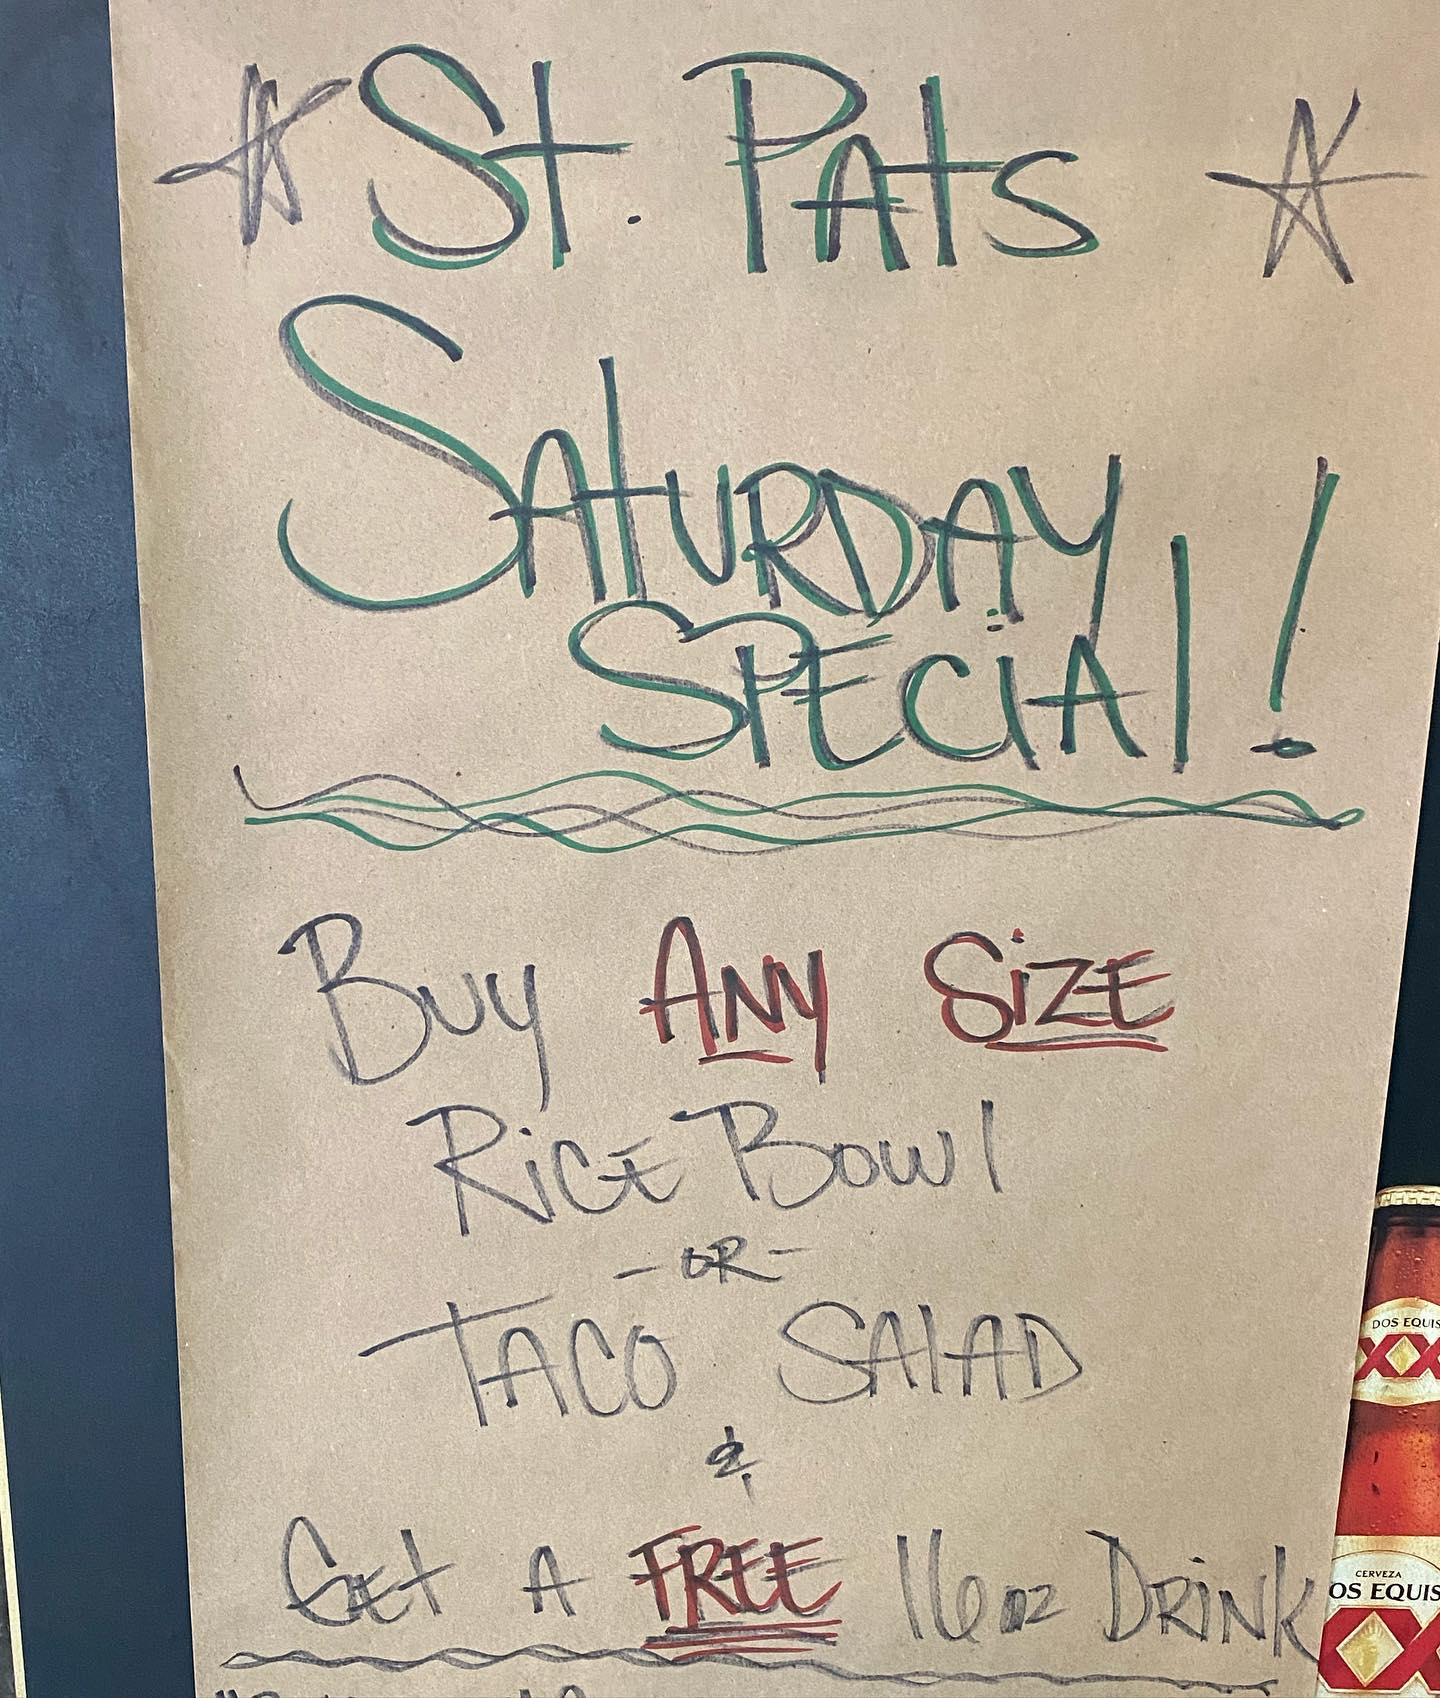 St. Pats
Saturday
Special!
Buy Any Size
Rice Bowl
- or -
Taco Salad
&
Get a FREE 16oz Drink
DOS EQUIS
XX
CERVEZA
OS EQUIS
XX